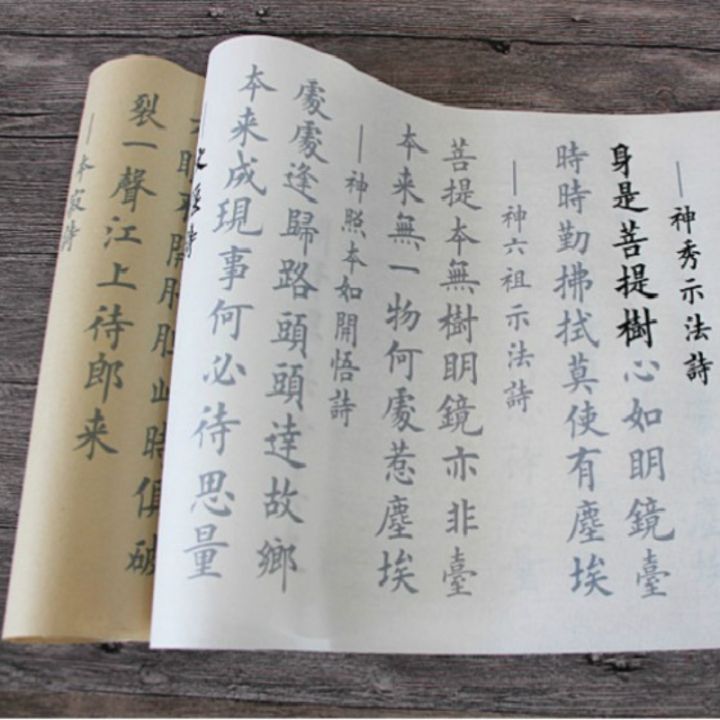 —神秀示法詩
身是菩提樹心如明鏡臺
時時勤拂拭莫使有塵埃
—神六祖示法詩
菩提本無樹明鏡亦非臺
本来無一物何處惹塵埃
—神照本如開悟詩
處處逢歸路頭頭達故鄉
本来成現事何必待思量
詩
時俱破
裂一聲江上待郎来
—本寂詩